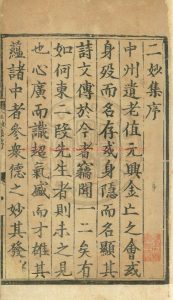 二妙集序
中州遺老值元興金亡之會或
身歿而名存或身隱而名顯其
詩文傳於今者竊聞一二矣有
如河東二段先生者則未之見
也心廣而識超氣盛而才雄其
蘊諸中者參衆德之妙其發